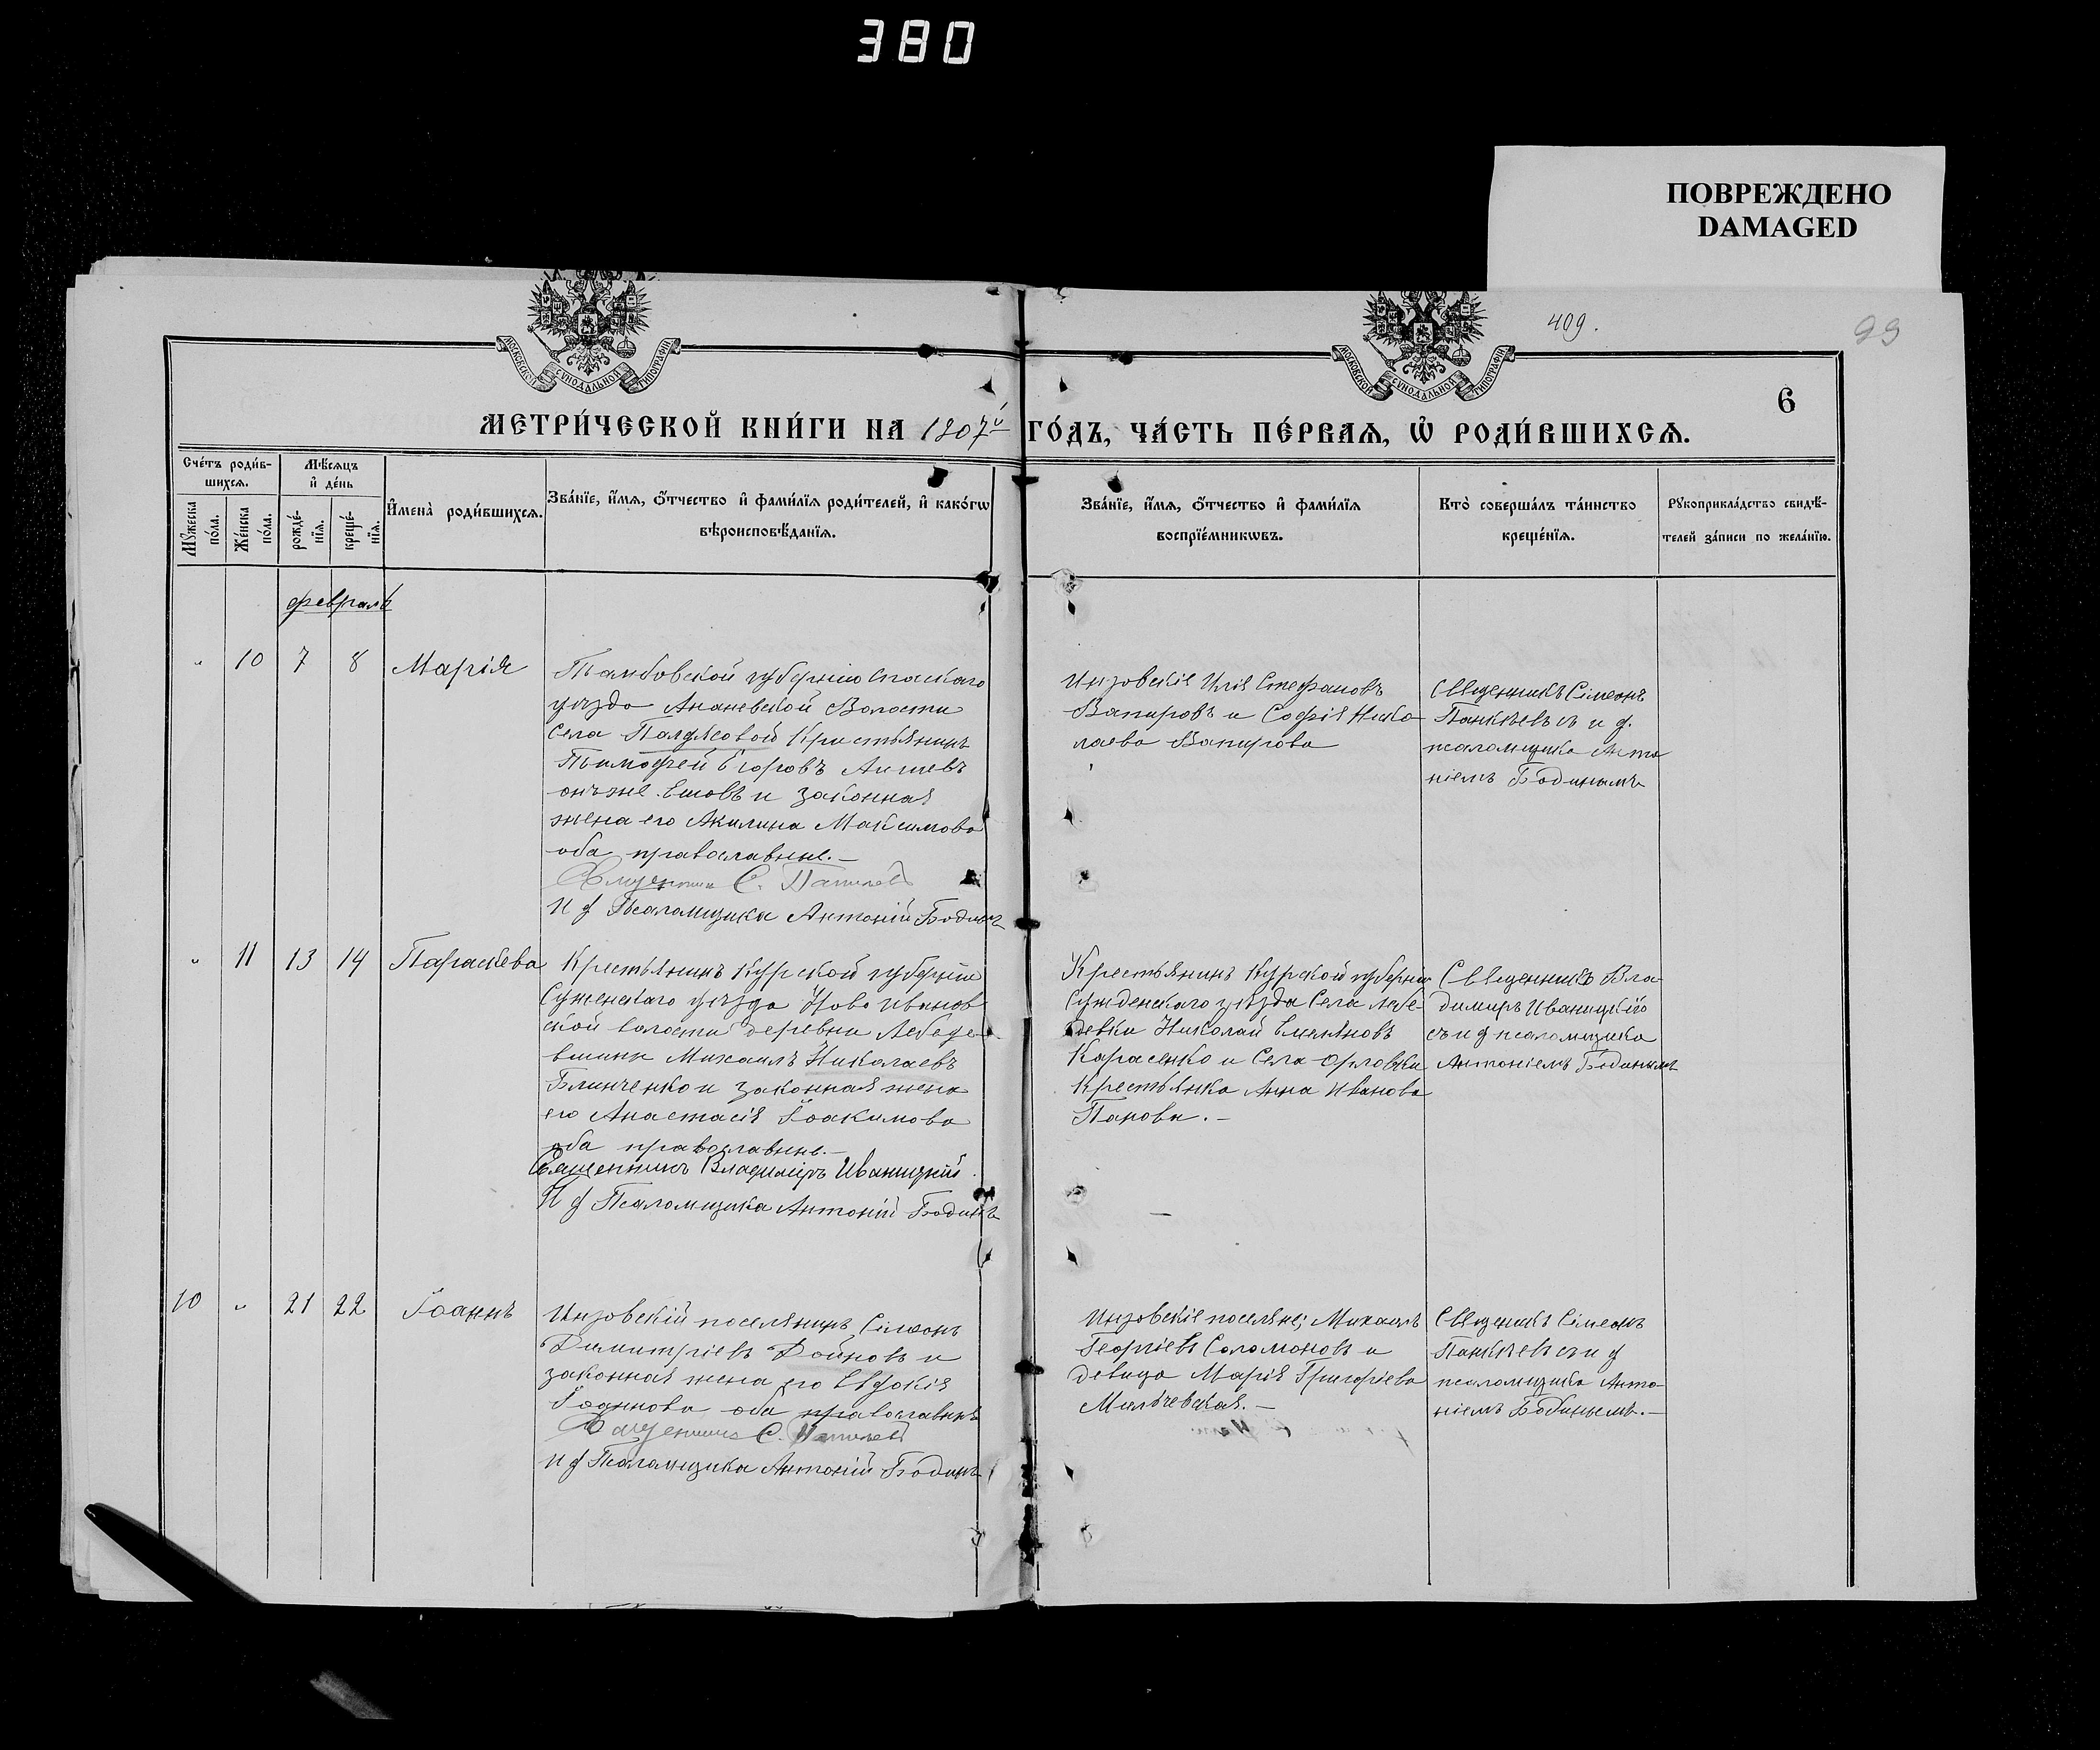 380
ПОВРЕЖДЕНО
DAMAGED
409.
99
МОСКОВСКОЙ СѴНОДАЛЬНОЙ ТИПОГРАФІИ
МОСКОВСКОЙ СѴНОДАЛЬНОЙ ТИПОГРАФІИ
6
МЕТРИ́ЧЕСКОЙ КНИ́ГИ НА 1907й ГО́ДЪ, ЧА́СТЬ ПЕ́РВАѦ, Ѽ РОДИ́ВШИХСѦ.
Сче́тъ роди́в-
шихсѧ.
Мꙋ́жеска по́ла.
Же́нска по́ла.
Мѣ́сѧцъ
и҆ де́нь
рожде́-
нїѧ.
креще́-
нїѧ.
И҆мена̀ роди́вшихсѧ.
Зва́нїе, и҆́мѧ, ѻ҆́тчество и҆ фами́лїѧ роди́телей, и҆ како́гѡ
вѣроисповѣ́данїѧ.
Зва́нїе, и҆́мѧ, ѻ҆́тчество и҆ фами́лїѧ
воспрїе́мникѡвъ.
Кто̀ соверша́лъ та́инство
креще́нїѧ.
Рꙋкоприкла́дство свидѣ́-
телей за́писи по жела́нїю.
февраль
" 10 7 8 Марія
Тамбовской губерніи Спаскаго
уѣзда Ананевской Волости
Села Кристьянинъ
Тимофей Егоровъ
онъ же Ешовъ и законная
жена его Акилина Максимова
оба православные.–
Священникъ С.
И ф Псаломщика Антоній Бодинъ
Инзовскіе Илія Стефановъ
Вапировъ и Софія Нико
лаева Вапирова
Священникъ Сімеонъ
съ и ф.
псаломщика Анто
ніемъ Бодинымъ
" 11 13 14 Параскева
Крестьянинъ Курской губерніи
Суженскаго уѣзда Ново Иванов
ской волости деревни Лебеде-
вшины Михаилъ Николаевъ
Блинченко и законная жена
его Анастасія Іоакимова
оба православные.–
Священникъ Владиміръ Иваницкій
И ф Псаломщика Антоній Бодинъ
Крестьянинъ Курской губерніи
Сужденскаго уѣзда Села Лебе-
девки Николай Емельяновъ
Карасенко и Села Орловки
Крестьянка Анна Иванова
Панова.–
Священникъ Вла
димиръ Иваницкій
съ и ф псаломщика
Антоніемъ Бодинымъ
10 " 21 22 Іоаннъ
Инзовскій поселянинъ Сімеонъ
Димитріевъ Войновъ и
законная жена его Евдокія
Іоаннова оба православные
Священникъ С.
И ф Псаломщика Антоній Бодинъ
Инзовскіе поселяне; Михаилъ
Георгіевъ Соломоновъ и
девица Марія Григоріева
Священикъ Сімеонъ
съ и ф
псаломщика Анто-
ніемъ Бодинымъ.–